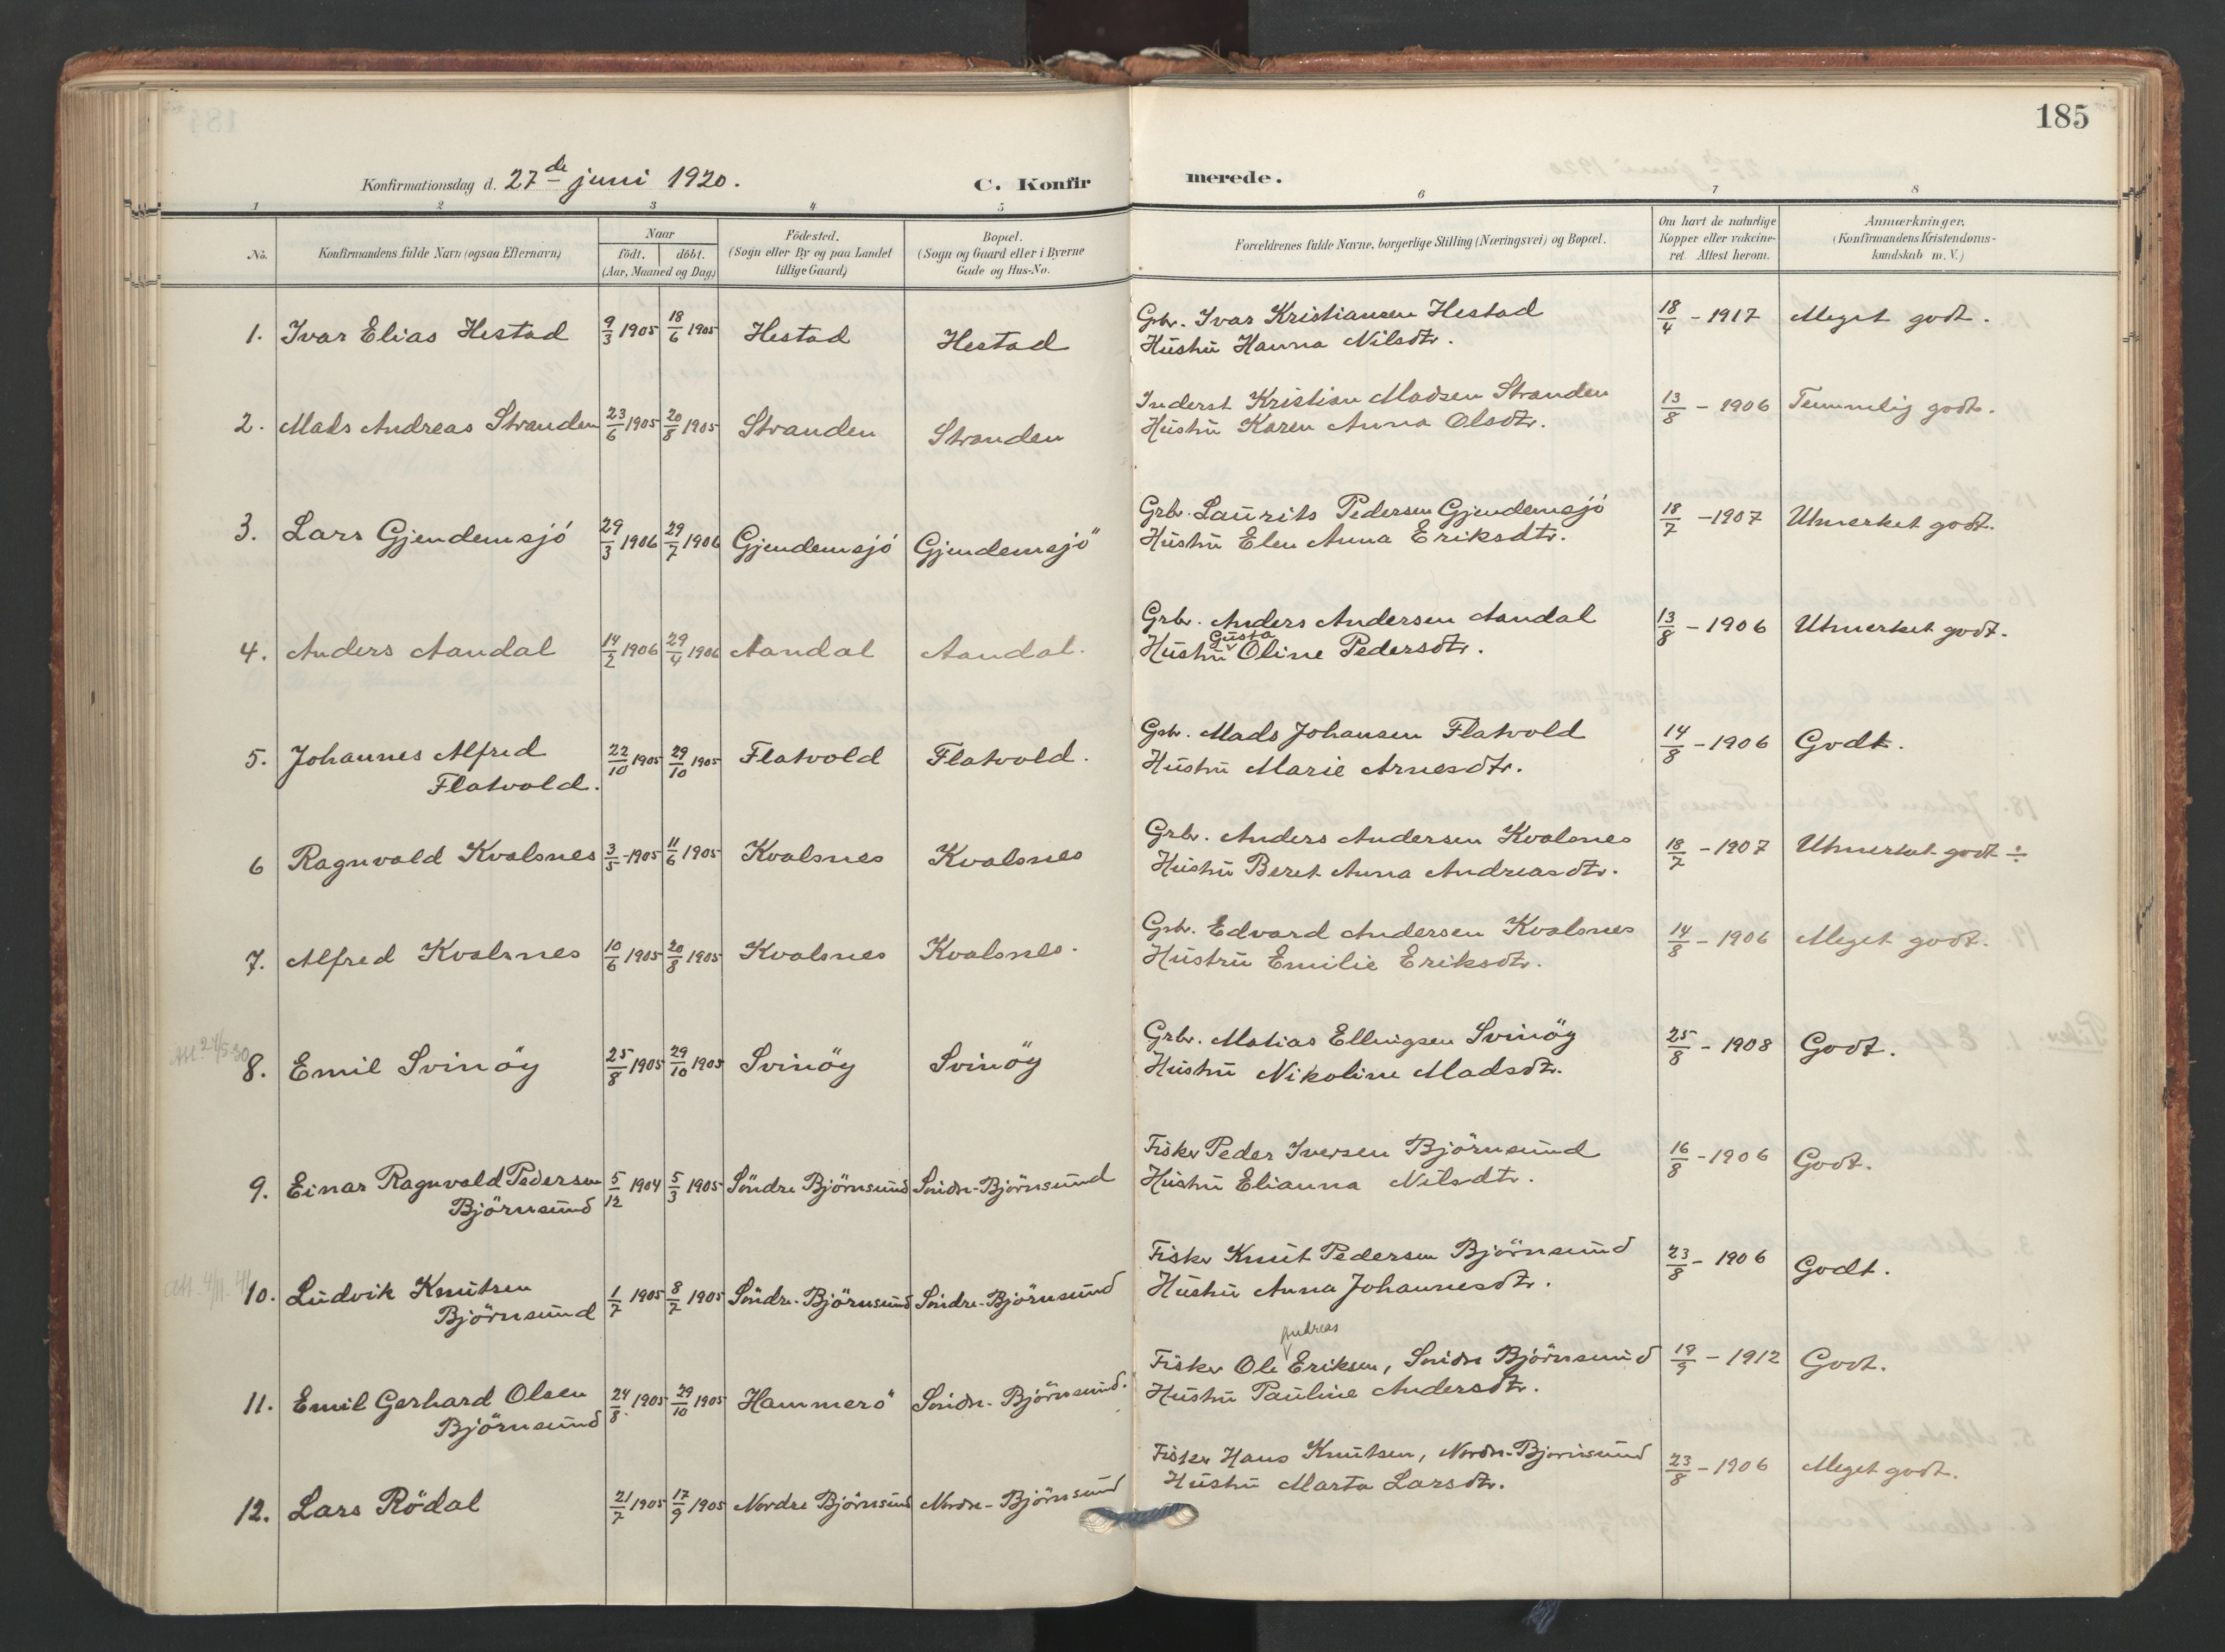 185
Konfirmationsdag d. 27de juni 1920.
C. Konfirmerede.
1 2 3 4 5 6 7 8
No.
Konfirmandens fulde Navn (ogsaa Efternavn)
Naar
födt. döbt.
(Aar, Maaned og Dag)
Födested.
(Sogn eller By og paa Landet
tillige Gaard)
Bopæl.
(Sogn og Gaard eller i Byerne
Gade og Hus-No.
Forældrenes fulde Navne, borgerlige Stilling (Næringsvei) og Bopæl.
Om havt de naturlige
Kopper eller vakcine-
ret. Attest herom.
Anmærkninger.
(Konfirmandens Kristendoms-
kundskab m. V.)
1. Ivar Elias Hestad 9/3 1905 18/6 1905 Hestad Hestad Grbr. Ivar Kristiansen Hestad 18/4 - 1917 Meget godt.
Hustru Hanna Nilsdtr.
2. Mads Andreas Stranden 23/6 1905 20/8 1905 Stranden Stranden Inderst Kristian Madsen Stranden 13/8 - 1906 Temmelig godt.
Hustru Karen Anna Olsdtr.
3. Lars Gjendemsjö 29/3 1906 29/7 1906 Gjendemsjö Gjendemsjö Grbr. Laurits Pedersen Gjendemsjö 18/7 - 1907 Utmerket godt.
Hustru Elen Anna Eriksdtr.
4. Anders Aandal 14/2 1906 29/4 1906 Aandal Aandal. Grbr. Anders Andersen Aandal 13/8 - 1906 Utmerket godt.
Gusta
Hustru Oline Pedersdtr.
5. Johannes Alfred 22/10 1905 29/10 1905 Flatvold Flatvold. Grbr. Mads Johansen Flatvold 14/8 - 1906 Godt.
Flatvold. Hustru Marie Arnesdtr.
6 Ragnvald Kvalsnes 3/5 - 1905 11/6 1905 Kvalsnes Kvalsnes Grbr. Anders Andersen Kvalsnes 18/7 - 1907 Utmerket godt ÷
Hustru Beret Anna Andreasdtr.
7. Alfred Kvalsnes 10/6 1905 20/8 1905 Kvalsnes Kvalsnes. Grbr. Edvard Andersen Kvalsnes 14/8 - 1906 Meget godt.
Hustru Emilie Eriksdtr.
Att 24/5 30
8. Emil Svinöy 25/8 1905 29/10 1905 Svinöy Svinöy Grbr. Matias Ellingsen Svinöy 25/8 - 1908 Godt.
Hustru Nikoline Madsdtr.
9. Einar Ragnvald Pedersen 5/12 1904 5/3 1905 Söndre Björnsund Söndre-Björnsund Fisker Peder Iversen Björnsund 16/8 - 1906 Godt.
Björnsund Hustru Elianna Nilsdtr.
Att. 4/11 41
10. Ludvik Knutsen 1/7 1905 8/7 1905 Söndre-Björnsund Söndre-Björnsund Fisker Knut Pedersen Björnsund 23/8 - 1906 Godt.
Björnsund Hustru Anna Johannesdtr.
Andreas
11. Emil Gerhard Olsen 24/8 1905 29/10 1905 Hammerö Söndre-Björnsund. Fisker Ole Eriksen, Söndre Björnsund 19/9 - 1912 Godt.
Björnsund Hustru Pauline Andersdtr.
12. Lars Rödal 21/7 1905 17/9 1905 Nordre Björnsund Nordre-Björnsund Fisker Hans Knutsen, Nordre-Björnsund 23/8 - 1906 Meget godt.
Hustru Marta Larsdtr.